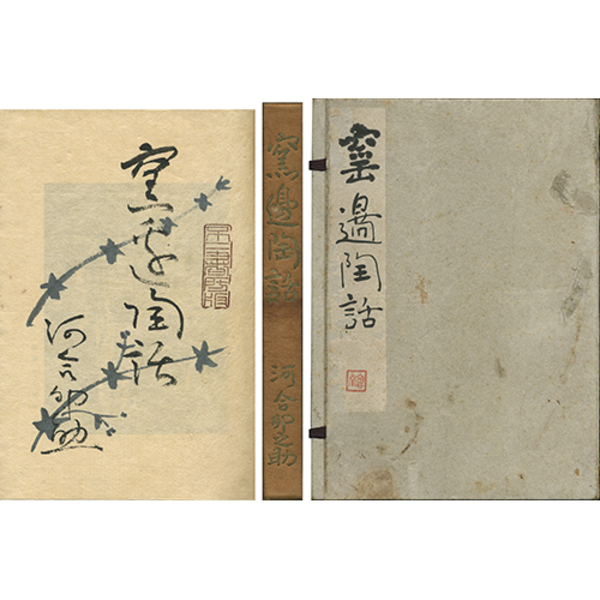 窯邊陶話
河合卯之助
窯邊陶話
河合卯之助
窰邊陶話